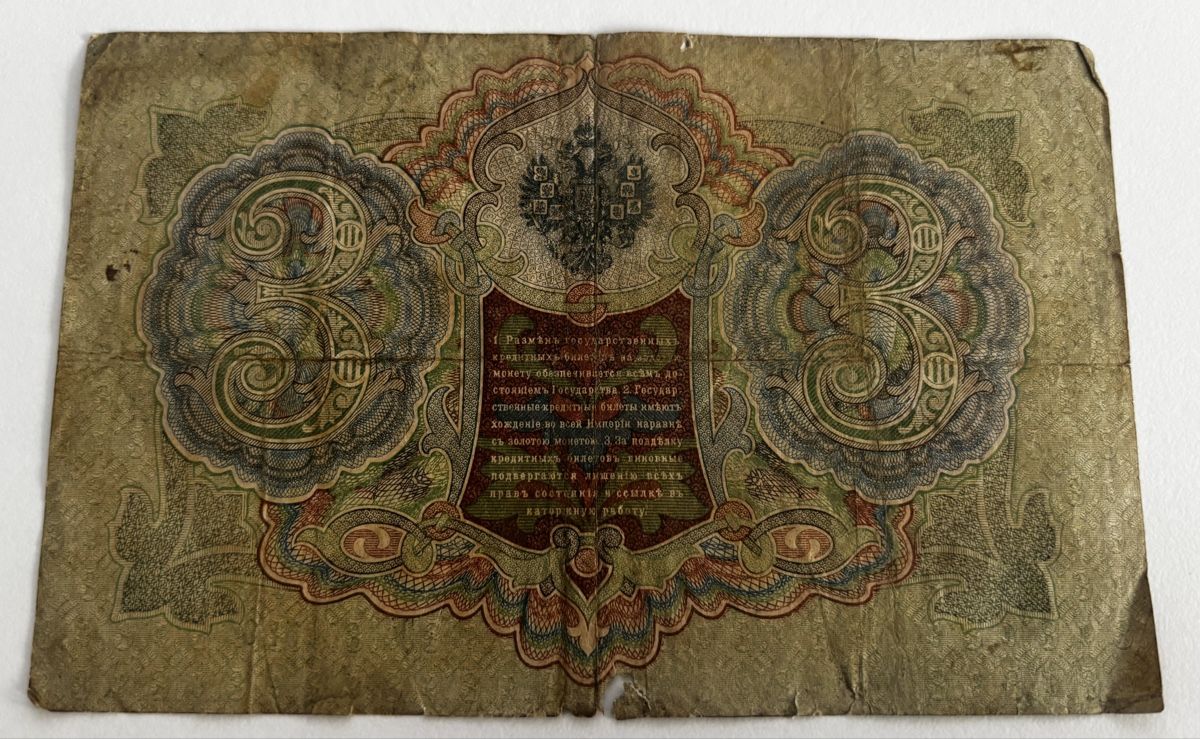 3 3
1. Размѣнъ государственныхъ
кредитныхъ билетовъ на золотую
монету обезпечивается всѣмъ до-
стоянiемъ Государства. 2. Государ-
ственные кредитные билеты имѣютъ
хожденiе во всей Имперiи наравнѣ
съ золотою монетою. 3. За поддѣлку
кредитныхъ билетовъ виновные
подвергаются лишенiю всѣхъ
правъ состоянiя и ссылкѣ въ
каторжную работу.